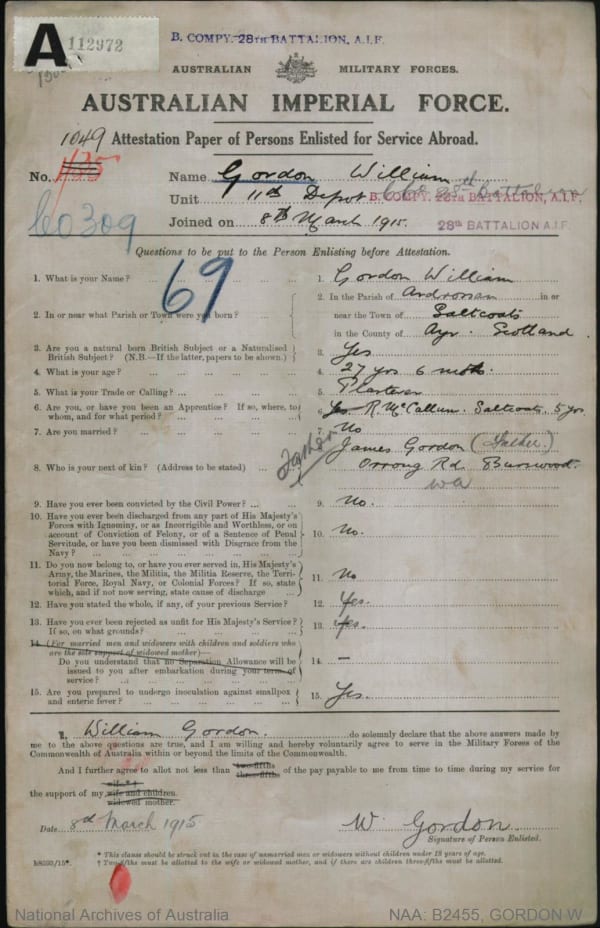 A 112972
B. COMPY. 28TH BATTALION, A.I.F.
AUSTRALIAN MILITARY FORCES.
AUSTRALIAN IMPERIAL FORCE.
1049 Attestation Paper of Persons Enlisted for Service Abroad.
No. 435 Name Gordon William
Unit 11th Depot B. COMPY. 28TH BATTALION, A.I.F.
60309 Joined on 8th March 1915. 28TH BATTALION A.I.F.
Questions to be put to the Person Enlisting before Attestation.
69
1. What is your Name? 1. Gordon William
2. In or near what Parish or Town were you born? 2. In the Parish of Ardrossan in or
near the Town of Saltcoats
in the County of Ayr. Scotland
3. Are you a natural born British Subject or a Naturalised
British Subject? (N.B.—If the latter, papers to be shown.) 3. Yes
4. What is your age? 4. 27 yrs 6 mths.
5. What is your Trade or Calling? 5. Plasterer
6. Are you, or have you been an Apprentice? If so, where, to
whom, and for what period? 6. Yes R. McCallum. Saltcoats 5 yrs.
7. Are you married? 7. No
8. Who is your next of kin? (Address to be stated) Father James Gordon (Father)
Orrong Rd. Burswood.
WA
9. Have you ever been convicted by the Civil Power? 9. No.
10. Have you ever been discharged from any part of His Majesty's
Forces with Ignominy, or as Incorrigible and Worthless, or on
account of Conviction of Felony, or of a Sentence of Penal
Servitude, or have you been dismissed with Disgrace from the
Navy? 10. No.
11. Do you now belong to, or have you ever served in, His Majesty's
Army, the Marines, the Militia, the Militia Reserve, the Terri-
torial Force, Royal Navy, or Colonial Forces? If so, state
which, and if not now serving, state cause of discharge 11. No
12. Have you stated the whole, if any, of your previous Service? 12. Yes.
13. Have you ever been rejected as unfit for His Majesty's Service?
If so, on what grounds? 13. Yes.
14. (For married men and widowers with children and soldiers who
are the sole support of widowed mother)—
Do you understand that no Separation Allowance will be
issued to you after embarkation during your term of
service? 14. –
15. Are you prepared to undergo inoculation against smallpox
and enteric fever? 15. Yes.
I, William Gordon. do solemnly declare that the above answers made by
me to the above questions are true, and I am willing and hereby voluntarily agree to serve in the Military Forces of the
Commonwealth of Australia within or beyond the limits of the Commonwealth.
And I further agree to allot not less than two-fifths three-fifths of the pay payable to me from time to time during my service for
the support of my wife*† wife and children. widowed mother.
Date 8th March 1915 W. Gordon
Signature of Person Enlisted.
* This clause should be struck out in the case of unmarried men or widowers without children under 18 years of age.
† Two-fifths must be allotted to the wife or widowed mother, and if there are children three-fifths must be allotted.
National Archives of Australia NAA: B2455, GORDON W